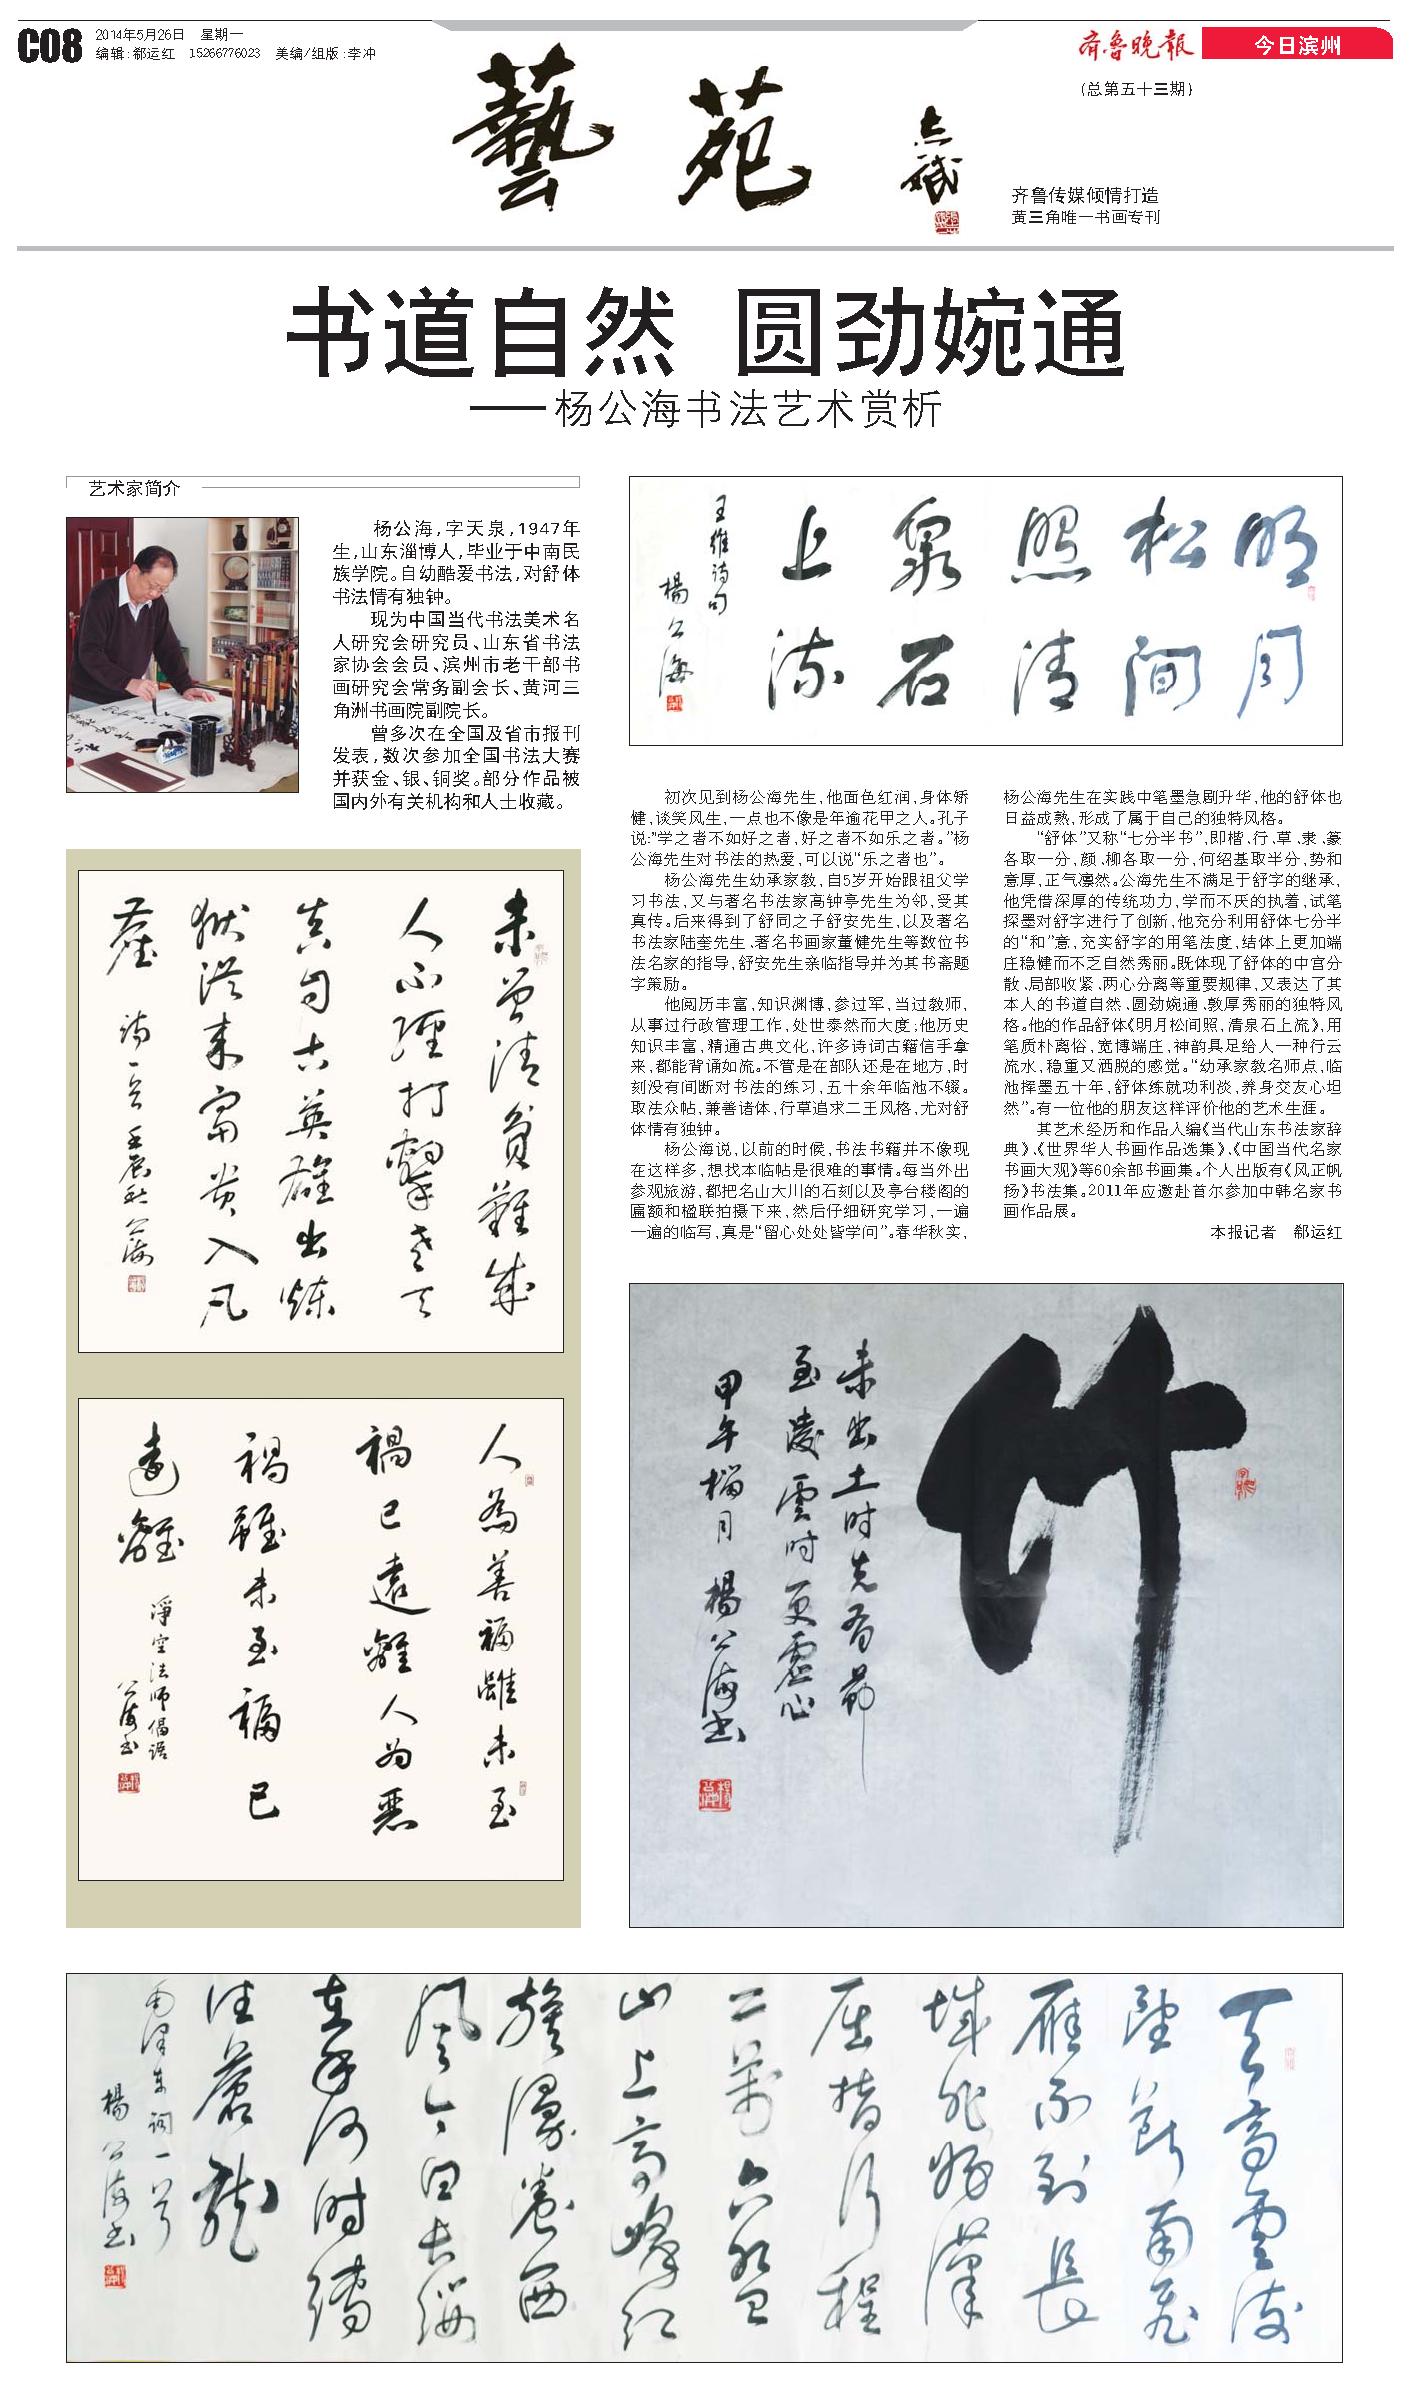 C08
2014年5月26日 星期一
编辑:郗运红 15266776023 美编/组版:李冲
齐鲁晚报
今日滨州
(总第五十三期)
藝苑
齐鲁传媒倾情打造
黄三角唯一书画专刊
书道自然 圆劲婉通
——杨公海书法艺术赏析
艺术家简介
杨公海,字天泉,1947年
生,山东淄博人,毕业于中南民
族学院。自幼酷爱书法,对舒体
书法情有独钟。
现为中国当代书法美术名
人研究会研究员、山东省书法
家协会会员、滨州市老干部书
画研究会常务副会长、黄河三
角洲书画院副院长。
曾多次在全国及省市报刊
发表,数次参加全国书法大赛
并获金、银、铜奖。部分作品被
国内外有关机构和人士收藏。
明月
松间
照清
泉石
上流
王维诗句
楊公海
初次见到杨公海先生,他面色红润,身体矫
健,谈笑风生,一点也不像是年逾花甲之人。孔子
说:“学之者不如好之者,好之者不如乐之者。”杨
公海先生对书法的热爱,可以说“乐之者也”。
杨公海先生幼承家教,自5岁开始跟祖父学
习书法,又与著名书法家高钟亭先生为邻,受其
真传。后来得到了舒同之子舒安先生,以及著名
书法家陆奎先生、著名书画家董健先生等数位书
法名家的指导,舒安先生亲临指导并为其书斋题
字策励。
他阅历丰富,知识渊博,参过军,当过教师,
从事过行政管理工作,处世泰然而大度;他历史
知识丰富,精通古典文化,许多诗词古籍信手拿
来,都能背诵如流。不管是在部队还是在地方,时
刻没有间断对书法的练习,五十余年临池不辍。
取法众帖,兼善诸体,行草追求二王风格,尤对舒
体情有独钟。
杨公海说,以前的时候,书法书籍并不像现
在这样多,想找本临帖是很难的事情。每当外出
参观旅游,都把名山大川的石刻以及亭台楼阁的
匾额和楹联拍摄下来,然后仔细研究学习,一遍
一遍的临写,真是“留心处处皆学问”。春华秋实,
杨公海先生在实践中笔墨急剧升华,他的舒体也
日益成熟,形成了属于自己的独特风格。
“舒体”又称“七分半书”,即楷、行、草、隶、篆
各取一分,颜、柳各取一分,何绍基取半分,势和
意厚,正气凛然。公海先生不满足于舒字的继承,
他凭借深厚的传统功力,学而不厌的执着,试笔
探墨对舒字进行了创新,他充分利用舒体七分半
的“和”意,充实舒字的用笔法度,结体上更加端
庄稳健而不乏自然秀丽。既体现了舒体的中宫分
散、局部收紧、两心分离等重要规律,又表达了其
本人的书道自然、圆劲婉通、敦厚秀丽的独特风
格。他的作品舒体《明月松间照,清泉石上流》,用
笔质朴离俗,宽博端庄,神韵具足给人一种行云
流水,稳重又洒脱的感觉。“幼承家教名师点,临
池挥墨五十年,舒体练就功利淡,养身交友心坦
然”。有一位他的朋友这样评价他的艺术生涯。
其艺术经历和作品入编《当代山东书法家辞
典》、《世界华人书画作品选集》、《中国当代名家
书画大观》等60余部书画集。个人出版有《风正帆
扬》书法集。2011年应邀赴首尔参加中韩名家书
画作品展。
本报记者 郗运红
未曾清貧難成
人不經打擊老天
真自古英雄出煉
獄從来富贵入凡
塵
诗一首 壬辰秋 公海
人為善福雖未至
禍已遠離人为惡
禍雖未至福已
遠離
淨空法师偈语
公海书
竹
未出土时先有節
至凌雲时更虚心
甲午榴月
楊公海书
天高雲淡
望断南飛
雁不到長
城非好漢
屈指行程
二萬六盤
山上高峰红
旗漫卷西
风今日长缨
在手何时縛
住蒼龍
毛泽东词一首
楊公海书